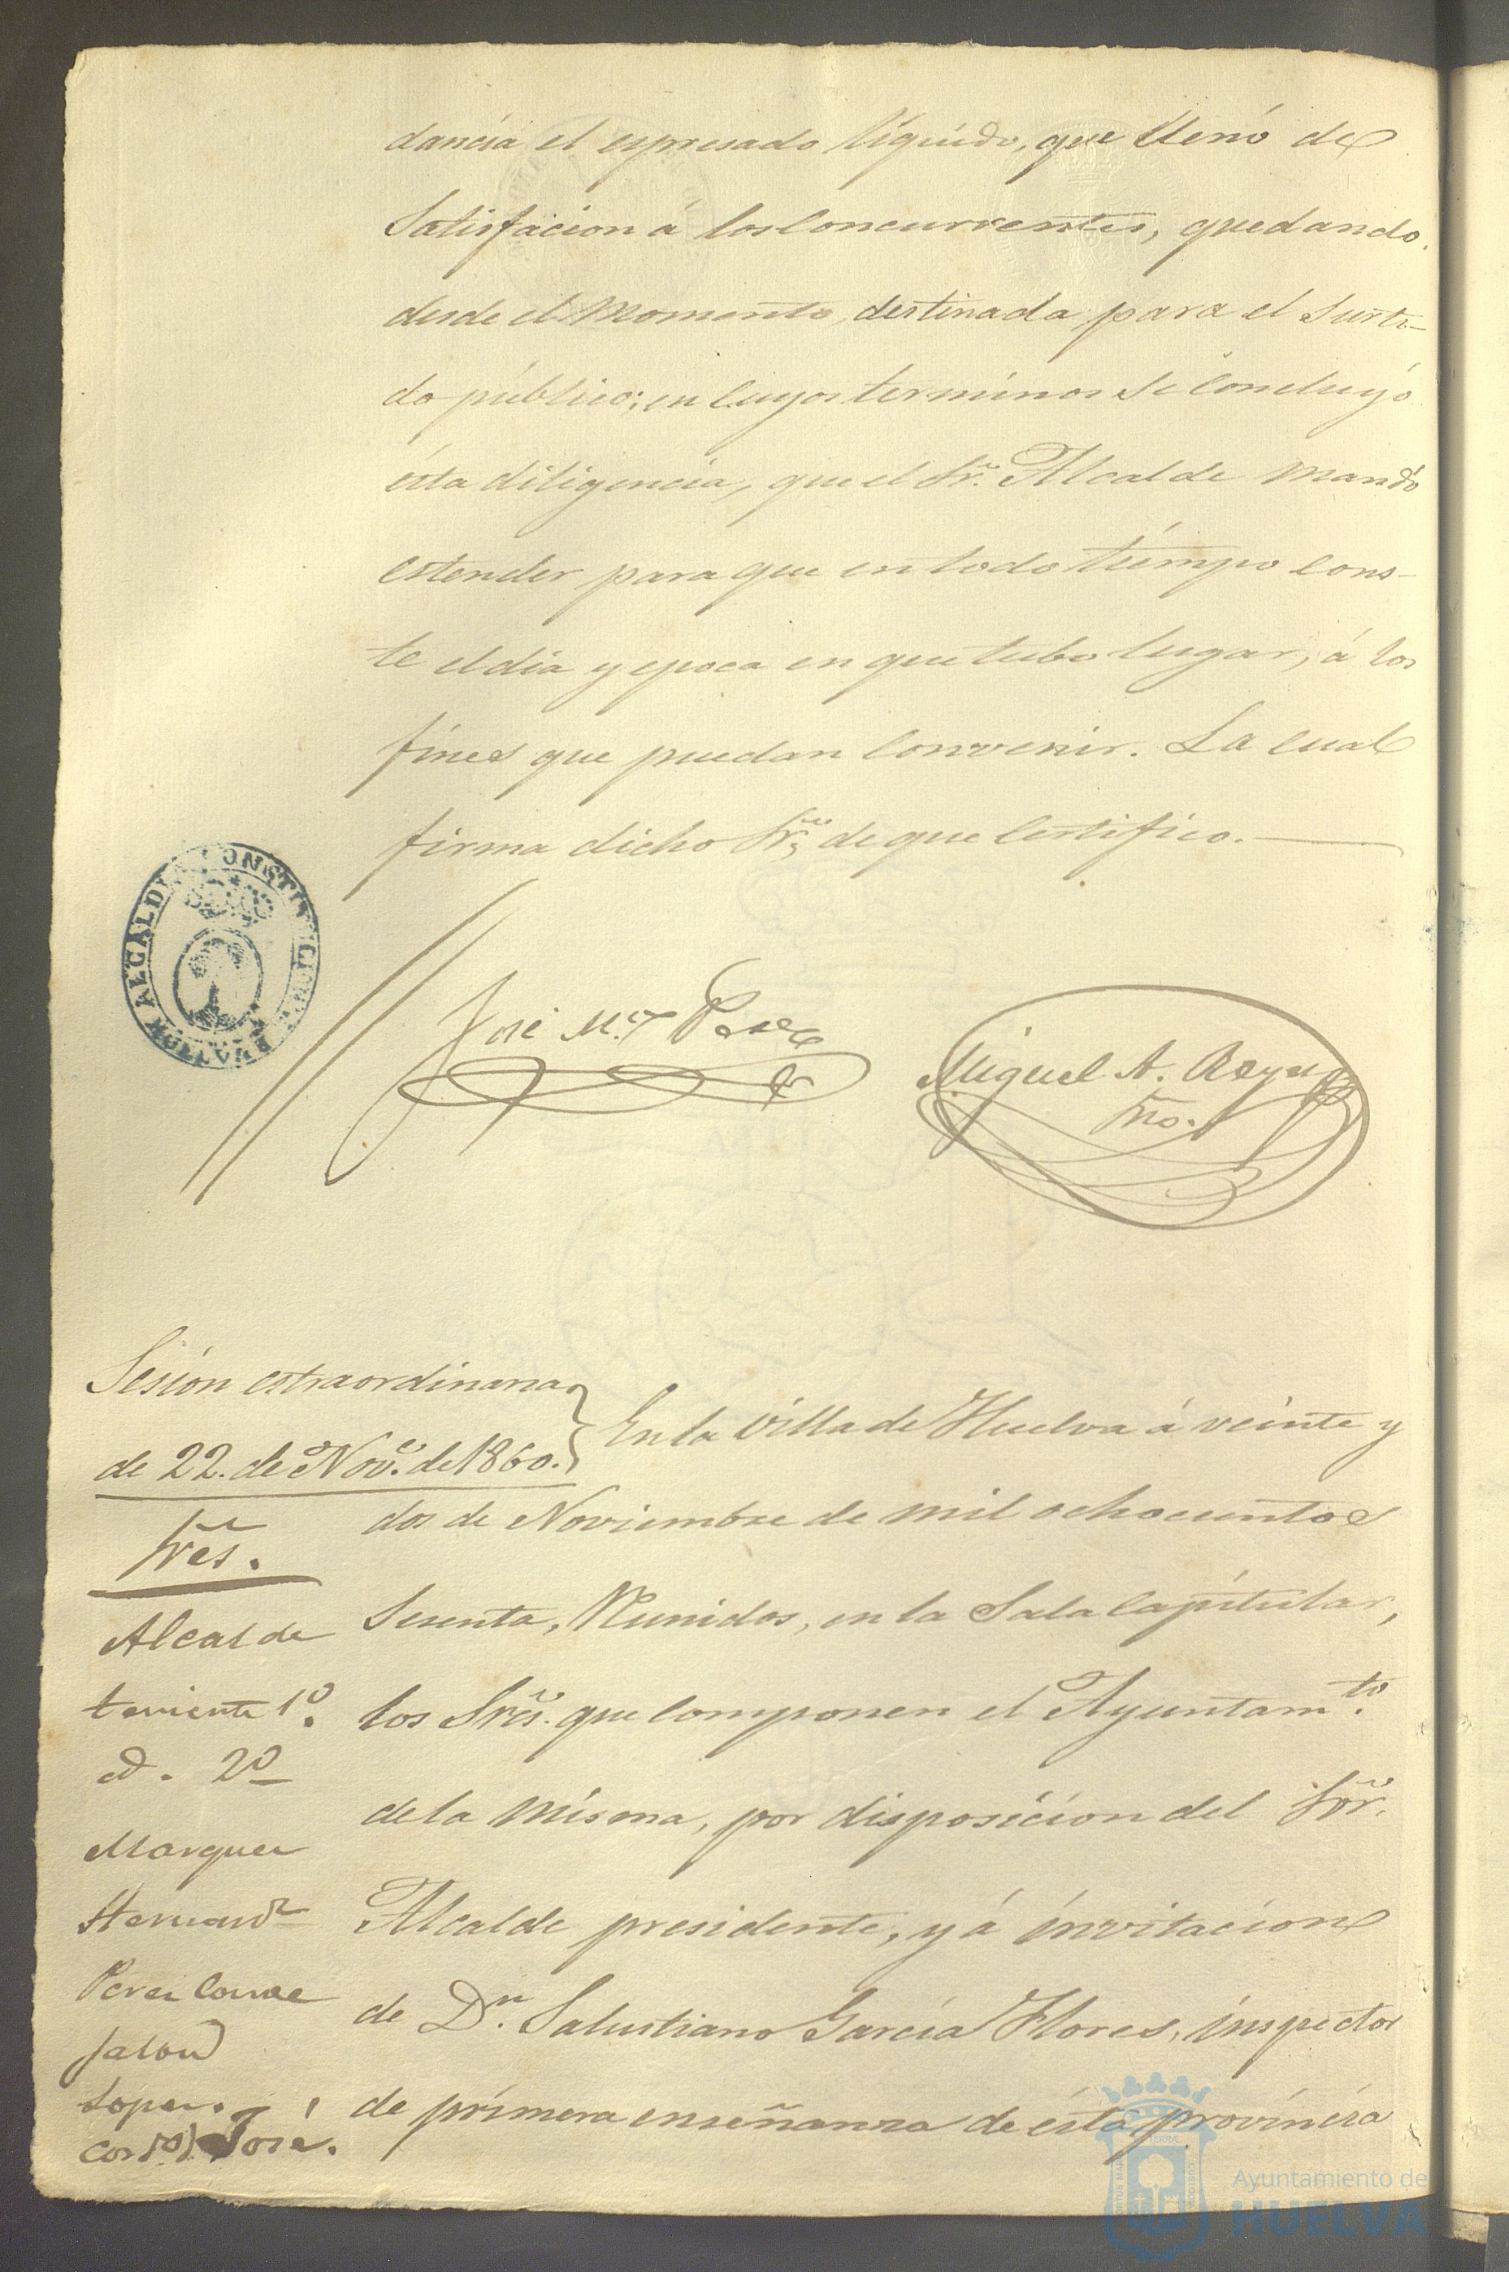 dancia el espresado liquido, que llenó de
Satisfacion á los Concurrentes, quedando
desde el momento destinada para el surti-
do público; en Cuyos terminos se Concluyó
esta diligencia, que el Sr. Alcalde mandó
estender para que en todo tiempo cons-
te el dia y epoca en que tubo lugar, á los
fines que puedan Convenir. La cual
firma dicho Sr. de que Certifico.
ALCALDIA CONSTITUCIONAL
José M.ª
Miguel A.
Srio.
Sesión estraordinaria
de 22. de Nov.e de 1860.
Sres.
Alcalde
teniente 1º.
id. 2º
Marquez
Hernandz
Perez Conde
Jalon
Lopez.
José.
En la villa de Huelva á veinte y
dos de Noviembre de mil ochocientos
Sesenta, Reunidos, en la Sala Capitular,
los Sres. que Componen el Ayuntam.to
de la misma, por disposicion del Sor.
Alcalde presidente, y á invitacion
de Dn. Salustiano Garcia Flores, inspector
de primera enseñanza de ésta provincia
Ayuntamiento de
HUELVA